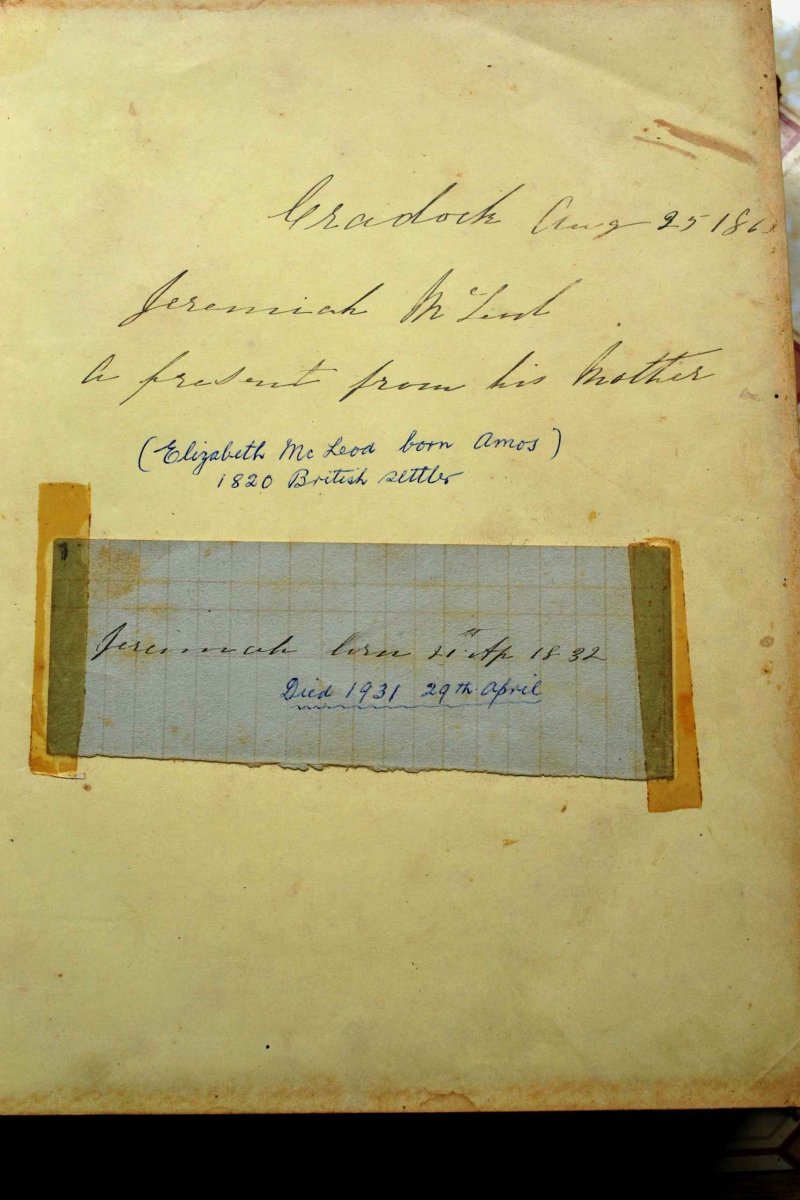 Cradock Aug 25 186
Jeremiah McLeod
A present from his Mother
(Elizabeth McLeod born Amos)
1820 British settler
Jeremiah born 21st Ap 1832
Died 1931 29th April